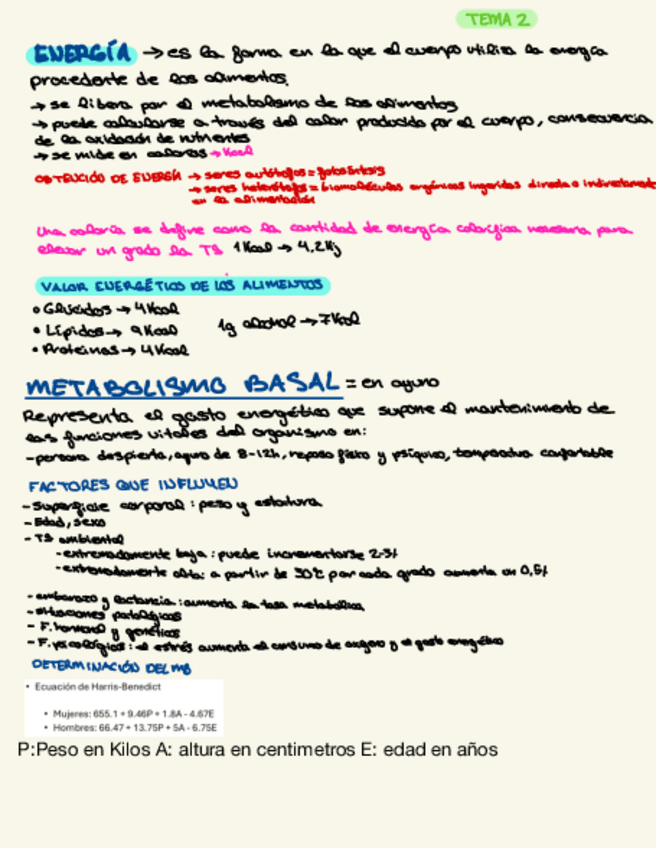 TEMA 2
ENERGÍA → es la forma en la que el cuerpo utiliza la energía
procedente de los alimentos.
→ se libera por el metabolismo de los alimentos
→ puede calcularse a través del calor producido por el cuerpo, consecuencia
de la oxidación de nutrientes
→ se mide en calorías → Kcal
OBTENCIÓN DE ENERGÍA → seres autótrofos = fotosíntesis
→ seres heterótrofos = biomoléculas orgánicas ingeridas directa o indirectamente
en la alimentación
Una caloría se define como la cantidad de energía calorífica necesaria para
elevar un grado la Tª 1 Kcal → 4,2 Kj
VALOR ENERGÉTICO DE LOS ALIMENTOS
• Glúcidos → 4 Kcal
• Lípidos → 9 Kcal 1g alcohol → 7 Kcal
• Proteínas → 4 Kcal
METABOLISMO BASAL = en ayuno
Representa el gasto energético que supone el mantenimiento de
las funciones vitales del organismo en:
- persona despierta, ayuno de 8-12h, reposo físico y psíquico, temperatura confortable
FACTORES QUE INFLUYEN
- Superficie corporal: peso y estatura
- Edad, sexo
- Tª ambiental
- extremadamente baja: puede incrementarse 2-3%
- extremadamente alta: a partir de 30℃ por cada grado aumenta un 0,5%
- embarazo y lactancia: aumenta la tasa metabólica
- situaciones patológicas
- F. hormonal y genéticos
- F. psicológicos: el estrés aumenta el consumo de oxígeno y el gasto energético
DETERMINACIÓN DEL MB
• Ecuación de Harris-Benedict
• Mujeres: 655.1 + 9.46P + 1.8A - 4.67E
• Hombres: 66.47 + 13.75P + 5A - 6.75E
P:Peso en Kilos A: altura en centimetros E: edad en años